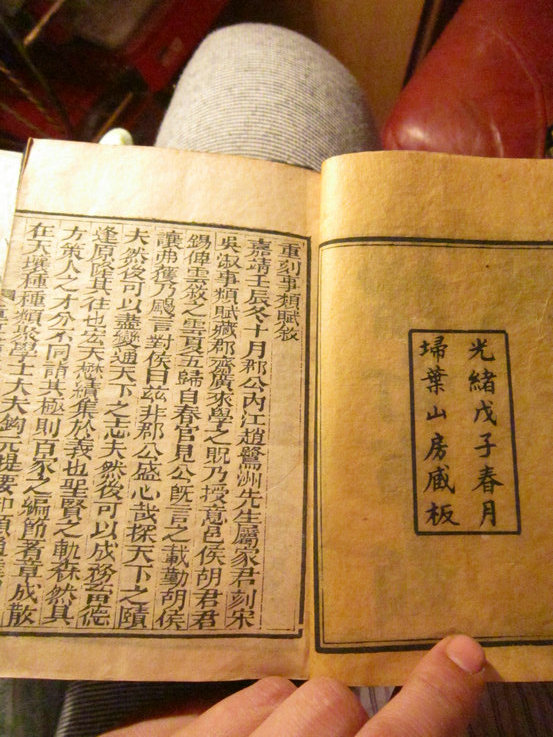 光緒戊子春月
埽葉山房藏板
重刻事類賦敘
嘉靖壬辰冬十月郡公內江趙鷺洲先生屬家君刻宋
吳淑事類賦藏郡齋廣來學之貺乃授意邑侯胡君君
錫俾雲敘之雲夏五歸自春官見公旣言之載勤胡侯
讓弗獲乃颺言對侯曰茲非郡公盛心哉探天下之賾
夫然後可以盡變通天下之志夫然後可以成務畜德
逢原陟其往也宏天懋績集於義也聖賢之軌森然具
方策人之才分不同詣其極則百家之編節者章成散
在天壤種種類聚學士大夫鈎元提要